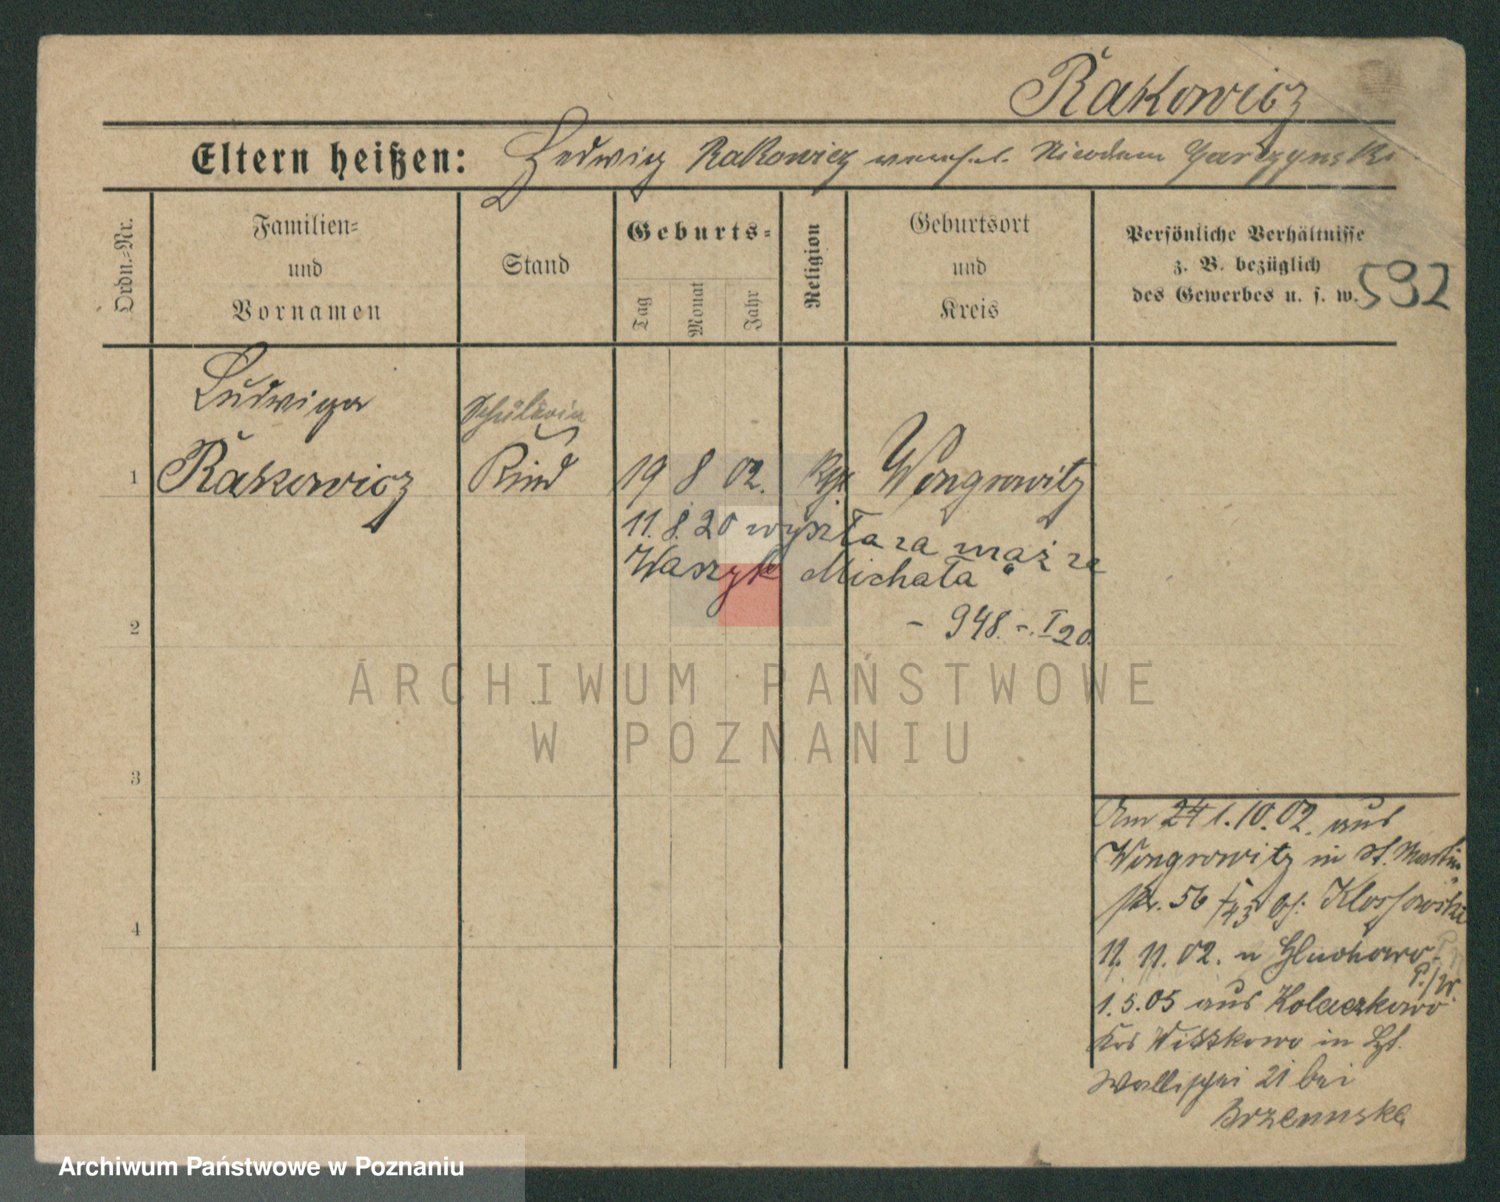 Rakowicz
Eltern heißen: Hedwig Rakowicz verehel. Nicodem Garczynski
Ordn.-Nr.
Familien-
und
Vornamen
Stand
Geburts-
Tag
Monat
Jahr
Religion
Geburtsort
und
Kreis
Persönliche Verhältnisse
z. B. bezüglich
des Gewerbes u. s. w.
592
Ludwiga
Schülerin
1 Rakowicz Kind 19 8 02. Wongrowitz
11. 8. 20 wyszła za mąż za
Waszyk Michała
2
- 948. -. I 20.
3
4
ARCHIWUM PAŃSTWOWE
W POZNANIU
Am 24 1. 10. 02. aus
Wongrowitz in St. Martin
str. 56 bei Klossowski
11. 11. 02. n Gluchowo
P./W.
1. 5. 05 aus Kolaczkowo
Krs Witzkowo in
Wallischei 21 bei
Archiwum Państwowe w Poznaniu